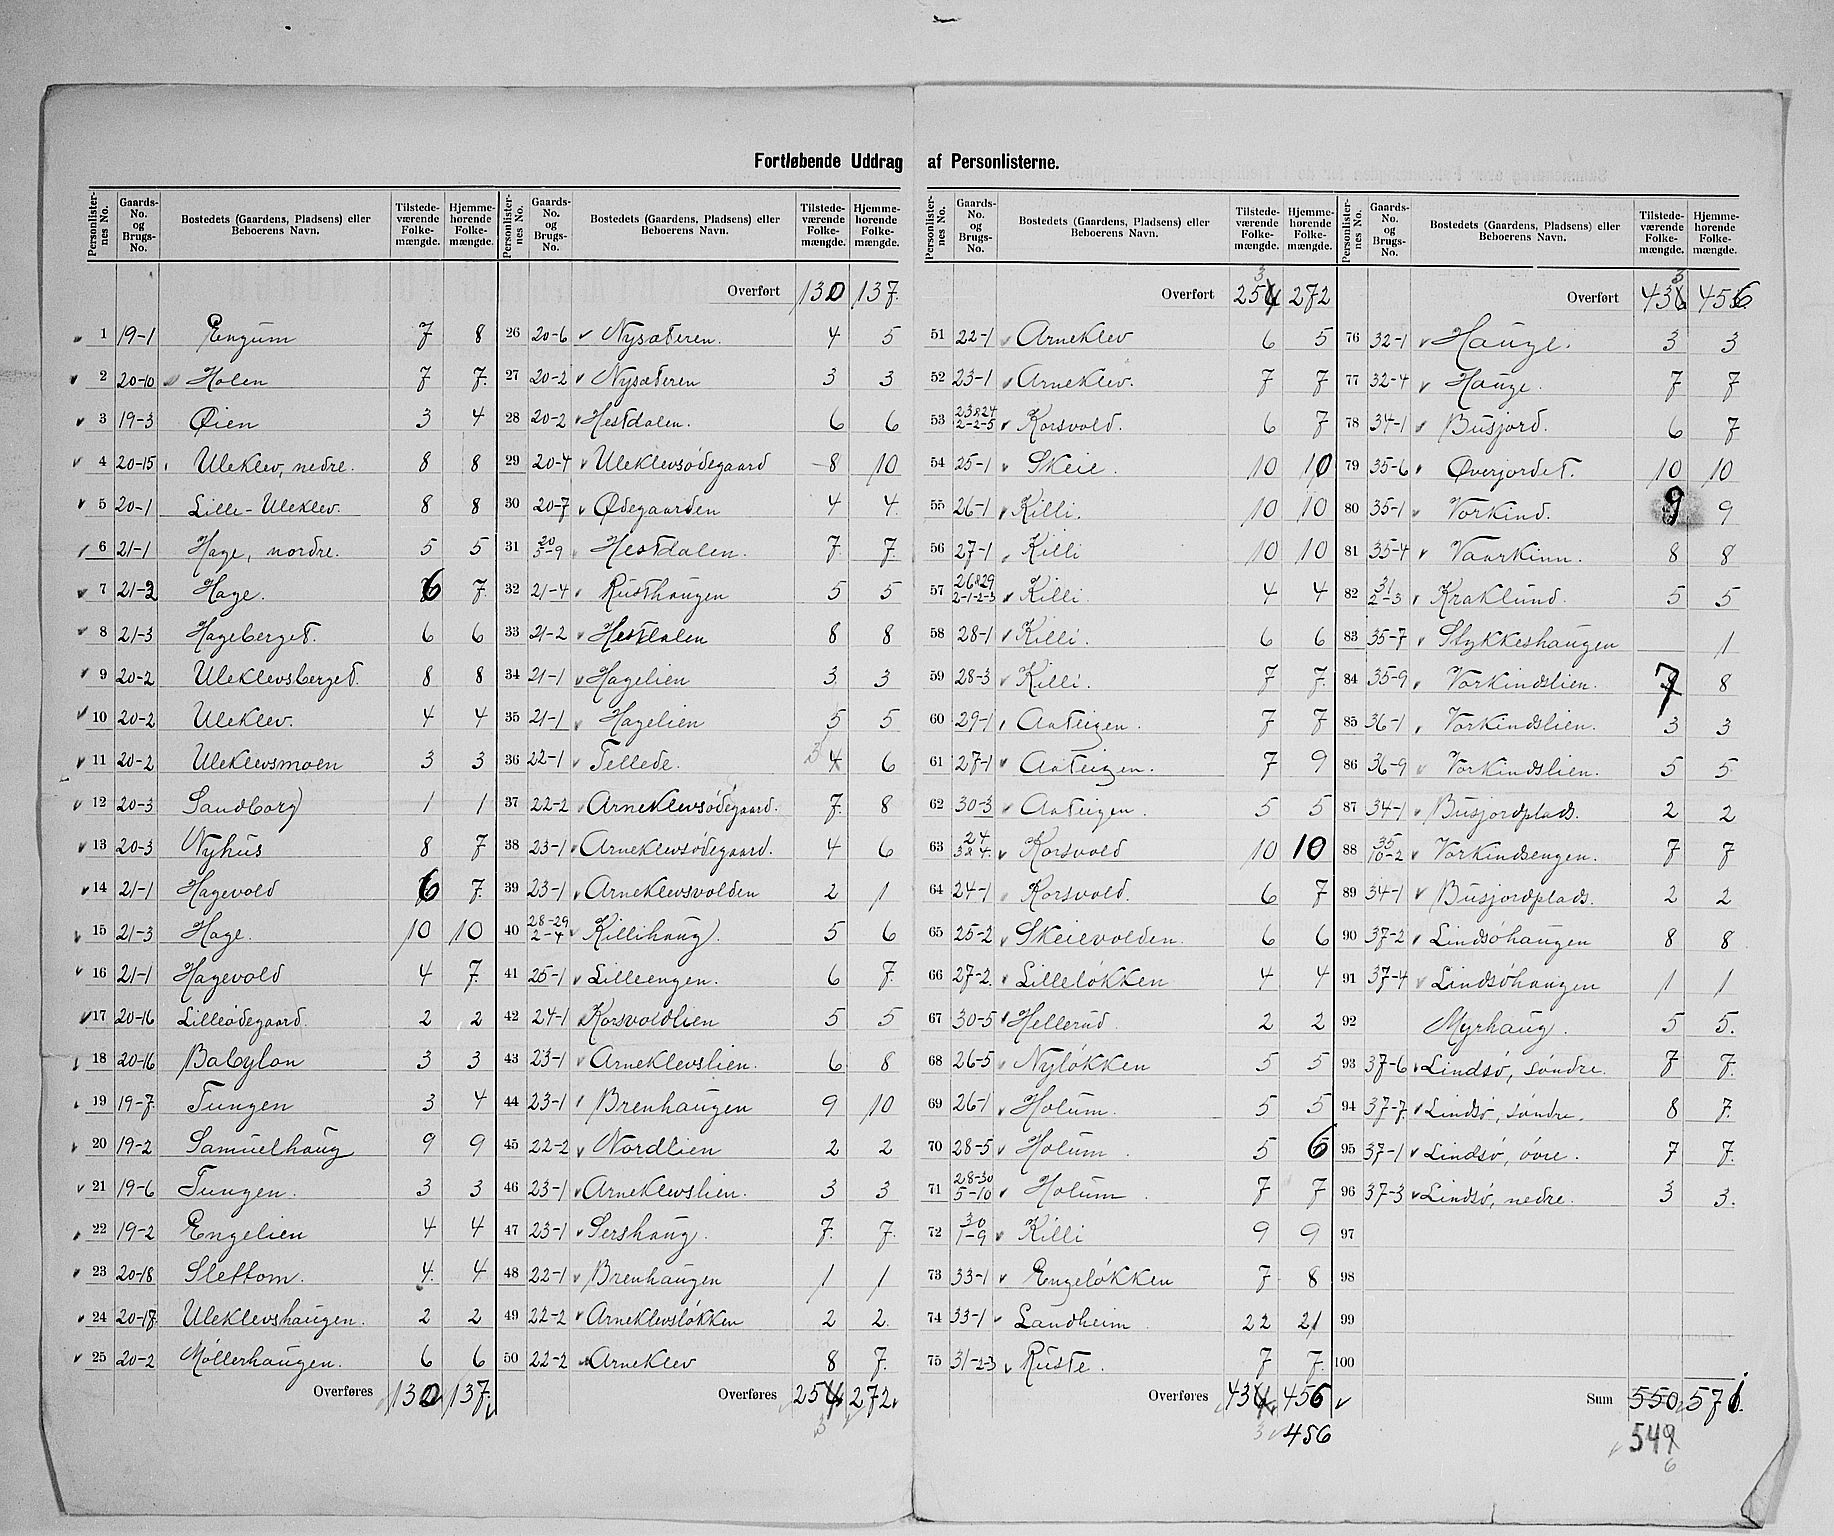 Fortløbende Uddrag af Personlisterne.
Personlister-nes No. Gaards-No. og Brugs-No. Bostedets (Gaardens, Pladsens) eller Beboerens Navn. Tilstede-værende Folke-mængde. Hjemme-hørende Folke-mængde.
1 19-1 Engum 7 8
2 20-10 Holen 7 7
3 19-3 Øien 3 4
4 20-15 Uleklev, nedre. 8 8
5 20-1 Lille-Uleklev. 8 8
6 21-1 Hage, nordre. 5 5
7 21-2 Hage. 6 7
8 21-3 Hageberget. 6 6
9 20-2 Uleklevsberget. 8 8
10 20-2 Uleklev. 4 4
11 20-2 Uleklevsmoen 3 3
12 20-3 Sandborg 1 1
13 20-3 Nyhus 8 7
14 21-1 Hagevold 6 7
15 21-3 Hage. 10 10
16 21-1 Hagevold 4 7
17 20-16 Lilleödegaard. 2 2
18 20-16 Babylon 3 3
19 19-7 Tungen 3 4
20 19-2 Samuelhaug 9 9
21 19-6 Tungen. 3 3
22 19-2 Engelien 4 4
23 20-18 Slettom. 4 4
24 20-17 Uleklevshaugen. 2 2
25 20-2 Möllerhaugen. 6 6
Overføres 130 137
Personlister-nes No. Gaards-No. og Brugs-No. Bostedets (Gaardens, Pladsens) eller Beboerens Navn. Tilstede-værende Folke-mængde. Hjemme-hørende Folke-mængde.
Overført 130 137.
26 20-6 Nysæteren. 4 5
27 20-2 Nysæteren 3 3
28 20-2 Hestdalen. 6 6
29 20-4 Uleklevsödegaard 8 10
30 20-7 Ødegaarden 4 4
31 20 5-9 Hestdalen. 7 7
32 21-4 Rusthaugen 5 5
33 21-2 Hestdalen 8 8
34 21-1 Hagelien 3 3
35 21-1 Hagelien 5 5
36 22-1 Tellede. 3 4 6
37 22-2 Arneklevsödegaard. 7 8
38 23-1 Arneklevsödegaard. 4 6
39 23-1 Arneklevsvolden 2 1
40 28-29 2-4 Killihaug. 5 6
41 25-1 Lilleengen. 6 7
42 24-1 Korsvoldlien 5 5
43 23-1 Arneklevslien. 6 8
44 23-1 Brenhaugen 9 10
45 22-2 Nordlien 2 2
46 23-1 Arneklevslien. 3 3
47 23-1 Sershaug. 7 7
48 22-1 Brenhaugen 1 1
49 22-2 Arneklevslökken 2 2
50 22-2 Arneklev 8 7
Overføres 254 272
3
Personlister-nes No. Gaards-No. og Brugs-No. Bostedets (Gaardens, Pladsens) eller Beboerens Navn. Tilstede-værende Folke-mængde. Hjemme-hørende Folke-mængde.
3
Overført 254 272
51 22-1 Arneklev 6 5
52 23-1 Arneklev. 7 7
53 23&24 2-2-5 Korsvold. 6 7
54 25-1 Skeie. 10 10
55 26-1 Killi. 10 10
56 27-1 Killi 10 10
57 26&29 2-1-2-3 Killi. 4 4
58 28-1 Killi. 6 6
59 28-3 Killi. 7 7
60 29-1 Aateigen. 7 7
61 27-1 Aateigen. 7 9
62 30-3 Aateigen. 5 5
63 24 3&4 Korsvold 10 10
64 24-1 Korsvold. 6 7
65 25-2 Skeievolden. 6 6
66 27-2 Lillelökken 4 4
67 30-5 Hellerud. 2 2
68 26-5 Nylökken 5 5
69 26-1 Holum. 5 5
70 28-5 Holum. 5 6
71 28-30 5-10 Holum. 7 7
72 30 1-9 Killi 9 9
73 33-1 Engelökken 7 8
74 33-1 Landheim. 22 21
75 31-23 Ruste. 7 7
Overføres 434 456
3 456
Personlister-nes No. Gaards-No. og Brugs-No. Bostedets (Gaardens, Pladsens) eller Beboerens Navn. Tilstede-værende Folke-mængde. Hjemme-hørende Folke-mængde.
3
Overført 434 456
76 32-1 Hauge. 3 3
77 32-4 Hauge. 7 7
78 34-1 Busjord. 6 7
79 35-6 Överjordet. 10 10
80 35-1 Vorkind. 9 9
81 35-4 Vaarkinn. 8 8
82 31 2-3 Kraklund. 5 5
83 35-7 Stykkeshaugen 1
84 35-9 Vorkindslien. 7 8
85 36-1 Vorkindslien. 3 3
86 36-9 Vorkindslien. 5 5
87 34-1 Busjordplads. 2 2
88 35 10-2 Vorkindsengen. 7 7
89 34-1 Busjordplads. 2 2
90 37-2 Lindsöhaugen 8 8
91 37-4 Lindsöhaugen 1 1
92 Myrhaug. 5 5.
93 37-6 Lindsö, söndre. 7 7.
94 37-7 Lindsö, söndre. 8 7.
95 37-1 Lindsö, övre. 7 7.
96 37-3 Lindsö, nedre. 3 3.
97
98
99
100
Sum 550 571
549
6